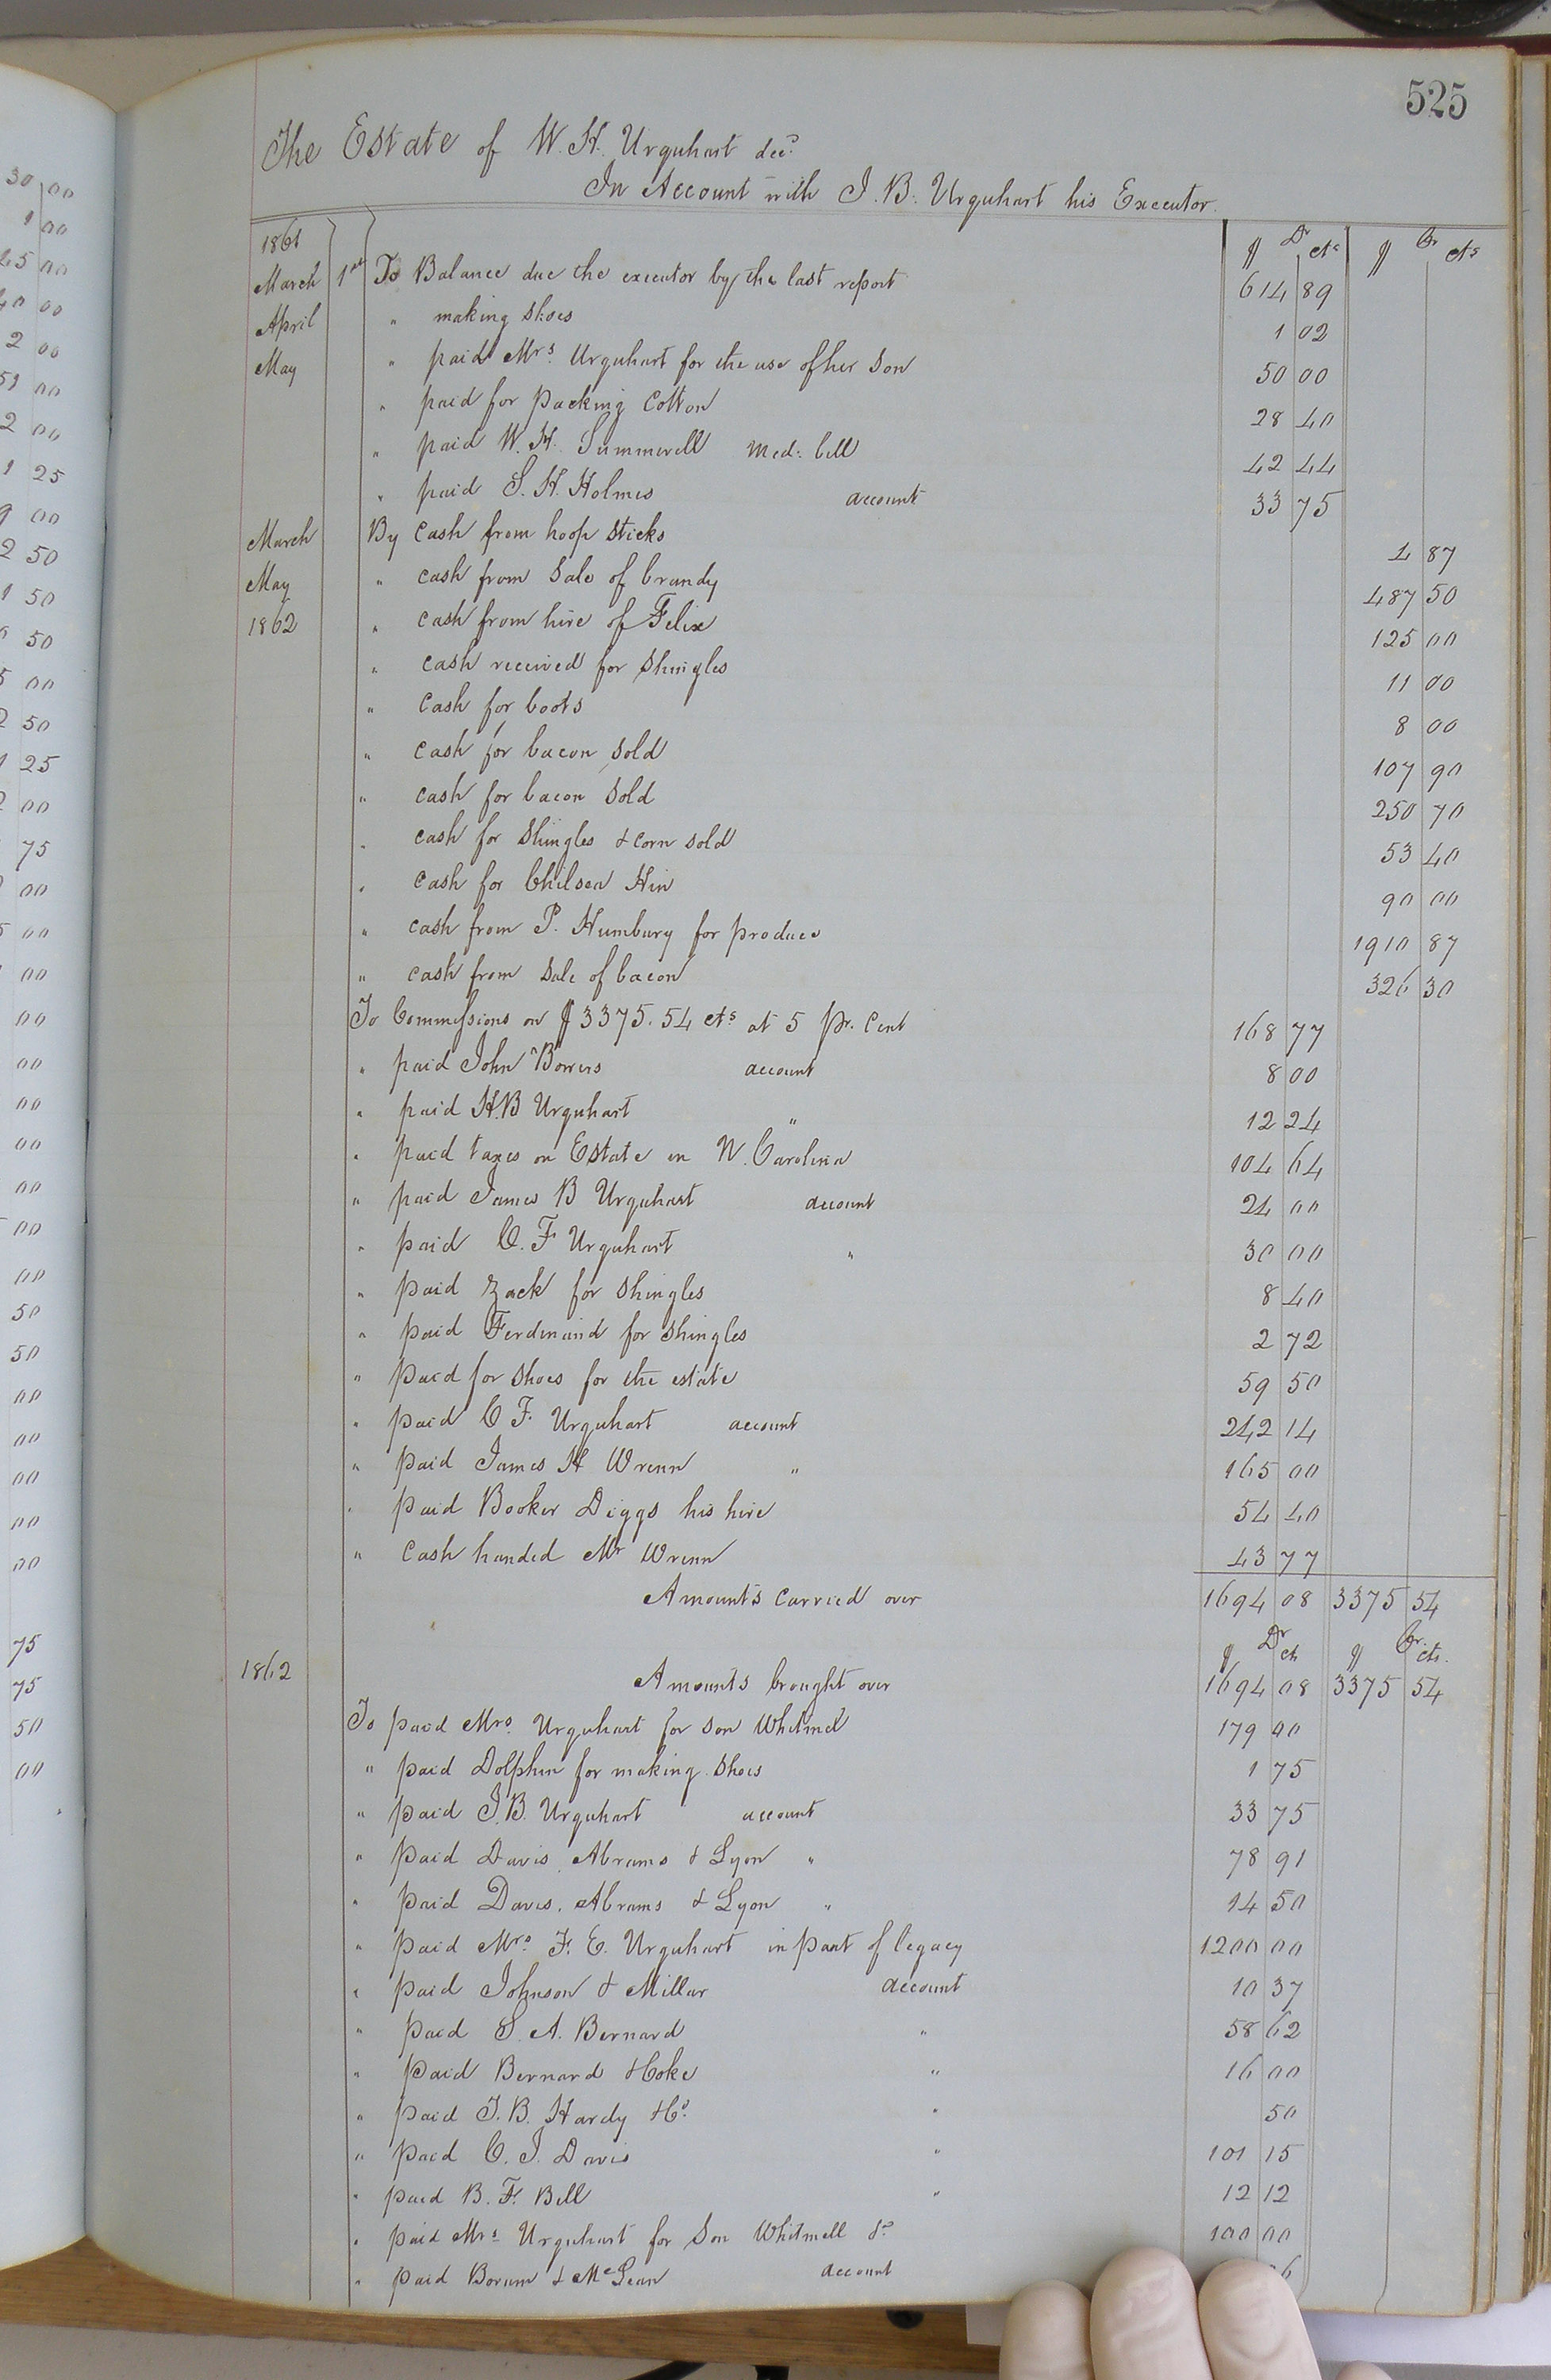 525
The Estate of W. H. Urquhart decd
In Account with J. B. Urquhart his Executor.
1861 $ Dr cts $ Cr cts
March 1st To Balance due the executor by the last report 614 89
April " making shoes 1 02
May " paid Mrs. Urquhart for the use of her son 50 00
" paid for packing Cotton 28 40
" paid W. H. Summerell Med: bill 42 44
" paid S. H. Holmes account 33 75
March By cash from hoop sticks 4 87
May " cash from sale of brandy 487 50
1862 " cash from hire of Felix 125 00
" cash received for shingles 11 00
" cash for boots 8 00
" cash for bacon sold 107 90
" cash for bacon sold 250 70
" cash for shingles & corn sold 53 40
" cash for Chelsea Hin 90 00
" cash from P. Humbury for produce 1910 87
" cash from sale of bacon 326 30
To Commissions on $3375.54 cts at 5 pr. Cent 168 77
" paid John Bowers account 8 00
" paid H.B Urquhart " 12 24
" paid taxes on Estate in N. Carolina 104 64
" paid James B Urquhart account 24 00
" paid C. F Urquhart " 30 00
" paid Zack for shingles 8 40
" paid Ferdinand for shingles 2 72
" paid for shoes for the estate 59 50
" paid C F. Urquhart account 242 14
" paid James H Wrenn " 165 00
" paid Booker Diggs his hire 54 40
" Cash handed Mr Wrenn 43 77
Amounts Carried over 1694 08 3375 54
$ Dr cts $ Cr. cts.
1862 Amounts brought over 1694 08 3375 54
To paid Mrs. Urquhart for son Whitmel 179 00
" paid Dolphin for making shoes 1 75
" paid J. B. Urquhart account 33 75
" paid Davis, Abrams & Lyon " 78 91
" paid Davis, Abrams & Lyon " 14 50
" paid Mrs. F. E. Urquhart in part of legacy 1200 00
" paid Johnson & Millar account 10 37
" paid S. A. Bernard " 58 62
" paid Bernard & Coke " 16 00
" paid J. B. Hardy & Co. " 50
" paid C. J. Davis " 101 15
" paid B. F. Bell " 12 12
" paid Mrs. Urquhart for son Whitmell 100 00
" paid Borum & McLean account